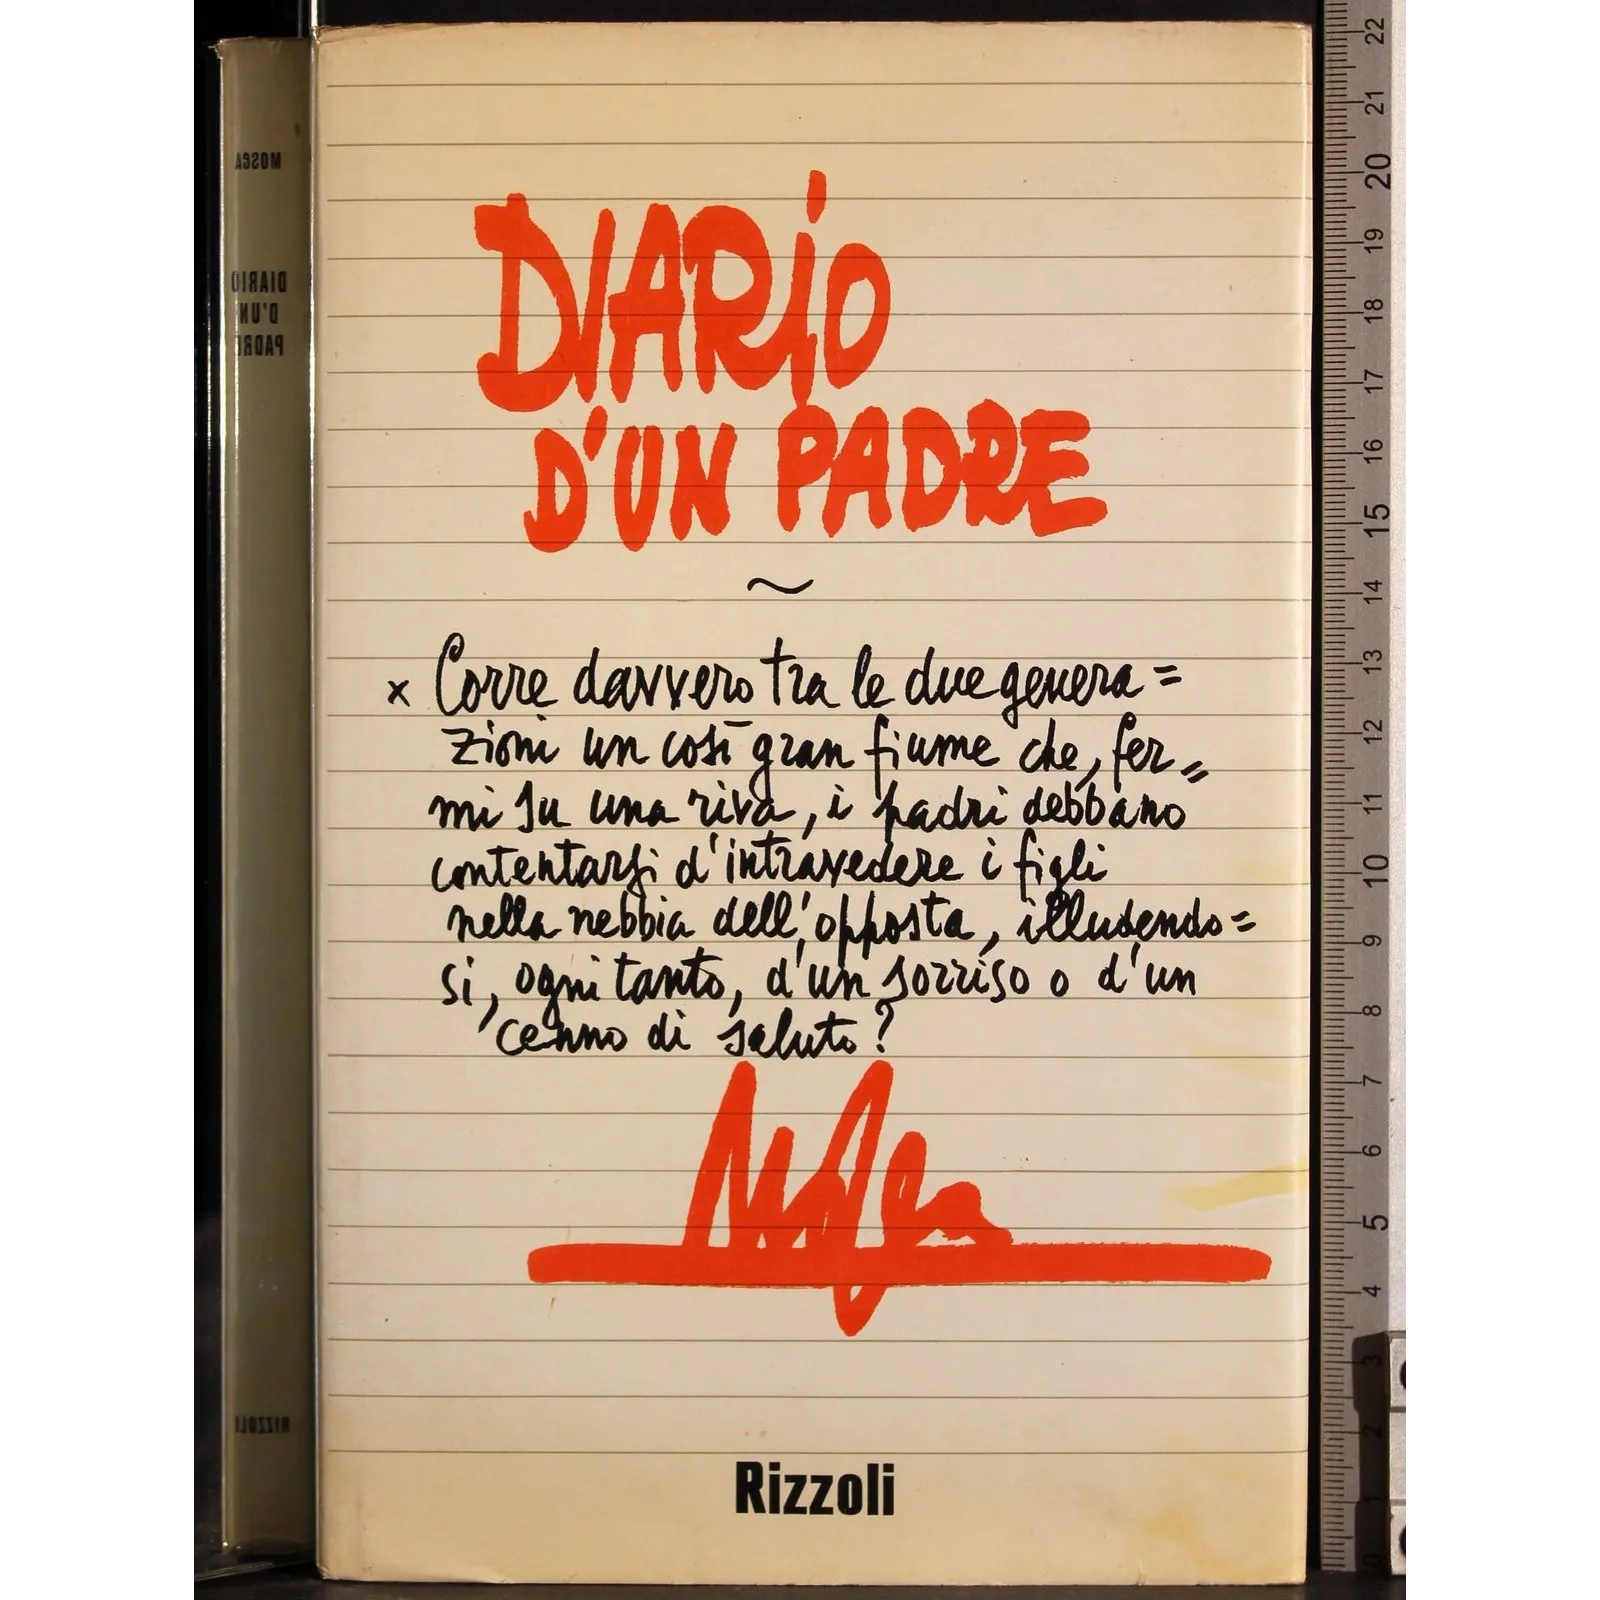 DIARIO
D'UN PADRE
~
x Corre davvero tra le due genera=
zioni un così gran fiume che, fer=
mi su una riva, i padri debbano
contentarsi d'intravedere i figli
nella nebbia dell'opposta, illudendo=
si, ogni tanto, d'un sorriso o d'un
cenno di saluto?
Mosca
Rizzoli
MOSCA
DIARIO
D'UN
PADRE
RIZZOLI
22
21
20
19
18
17
16
15
14
13
12
11
10
9
8
7
6
5
4
3
2
1
0